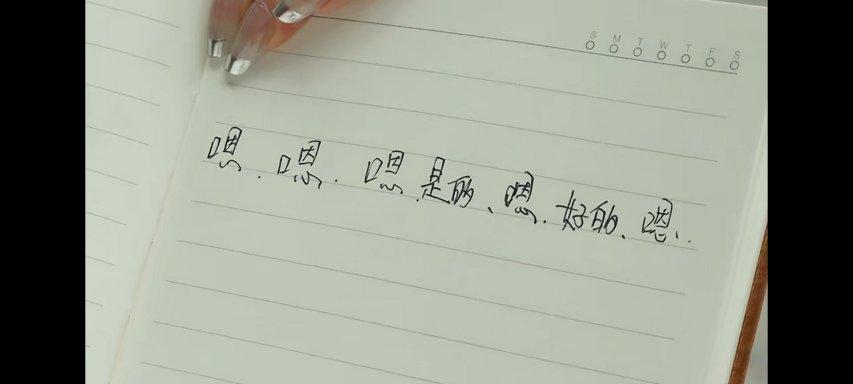 S M T W T F S
嗯.嗯.嗯.是的、嗯.好的、嗯..